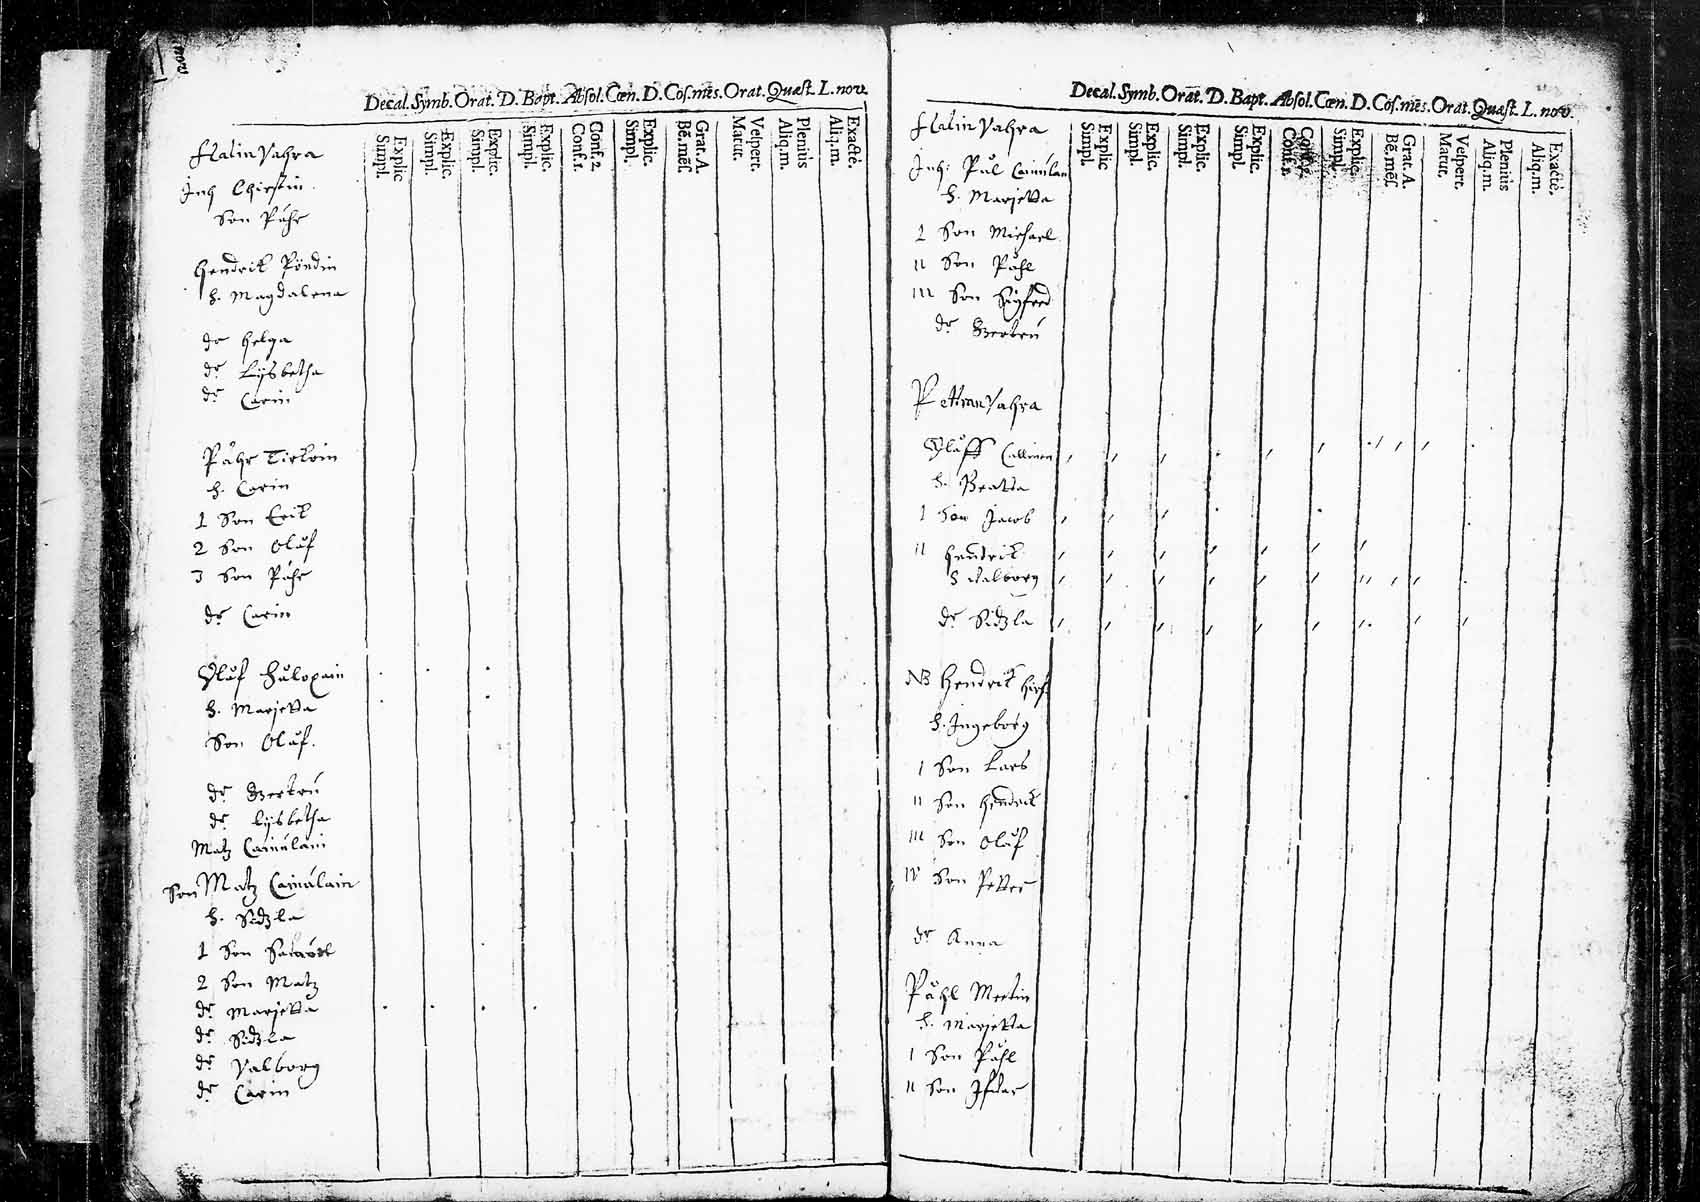 nov
Decal. Symb. Orat. D. Bapt. Absol. Cœn. D. Cōf. mēs. Orat. Quæst. L. nov.
Explic Simpl. Explic. Simpl. Explic. Simpl. Explic. Simpl. Conf. 2. Conf. 1. Explic. Simpl. Grat. A. Bē. mēs. Vespert. Matut. Pleniùs Aliq. m. Exactè. Aliq. m.
Flatin Vahra
Inh Chirstin.
Son Påhr
Hendrik Pöndin
h. Magdalena
dr Helga
dr Lijsbetha
dr Carin
Påhr
h. Carin
1 Son Erik
2 Son Oluf
3 Son Påhr
dr Carin
Oluf
h. Marjetta
Son Oluf.
dr
dr Lijsbetha
Matz Cainulain
Son Matz Cainulain
h. Sidzla
1 Son
2 Son Matz
dr Marjetta
dr Sidzla
dr Valborg
dr Carin
Decal. Symb. Orat. D. Bapt. Absol. Cœn. D. Cōf. mēs. Orat. Quæst. L. nov.
Explic Simpl. Explic. Simpl. Explic. Simpl. Explic. Simpl. Conf. 2. Conf. 1. Explic. Simpl. Grat. A. Bē. mēs. Vespert. Matut. Pleniùs Aliq. m. Exactè. Aliq. m.
Flatin Vahra
Inh: Pål Cainulan
h. Marjetta
1 Son Michael
II Son Påhl
III Son Sigfred
dr
Pettran Vahra
Oluff
h. Beata
I Son Jacob
II Hendrik
S Valborg
dr Sidzla
NB Hendrik
h. Ingeborg
I Son Lars
II Son Hendrik
III Son Oluf
IV Son Petter
dr Anna
Påhl
h. Marjetta
I Son Påhl
II Son